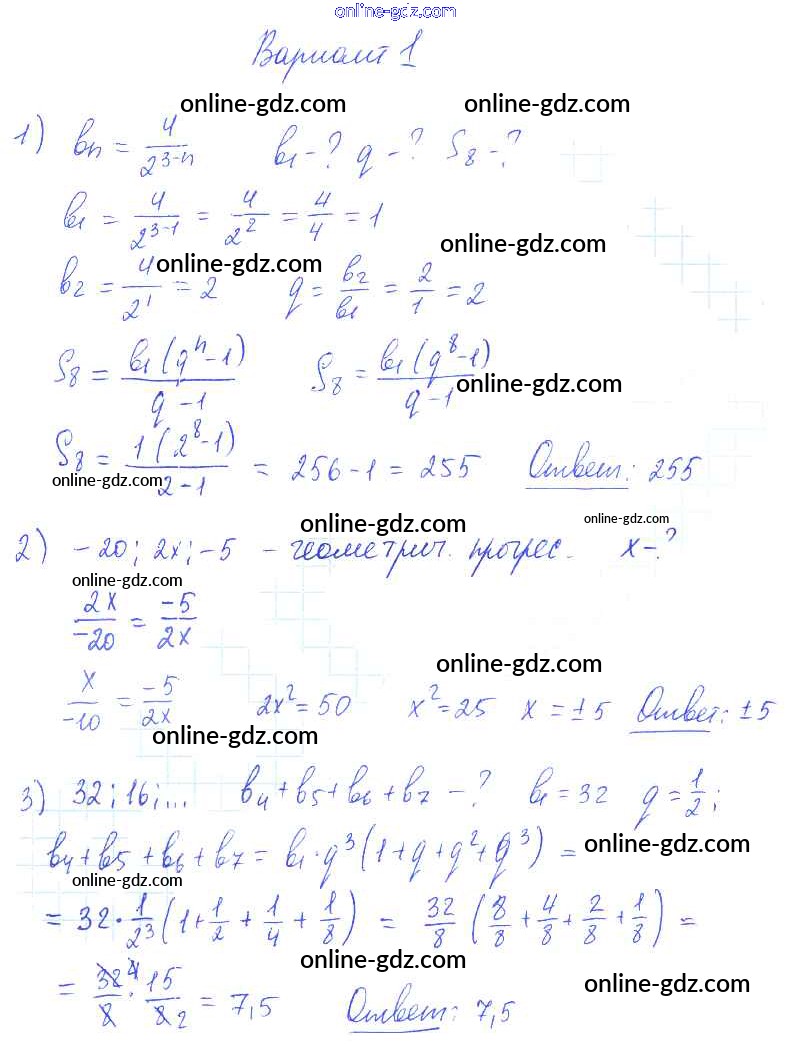 online-gdz.com
Вариант 1
online-gdz.com online-gdz.com
1) bn = 4/2^(3-n) b1 - ? q - ? S8 - ?
b1 = 4/2^(3-1) = 4/2^2 = 4/4 = 1
online-gdz.com
online-gdz.com
b2 = 4/2^1 = 2 q = b2/b1 = 2/1 = 2
S8 = b1(q^n-1)/(q-1) S8 = b1(q^8-1)/(q-1)
online-gdz.com
S8 = 1(2^8-1)/(2-1) = 256-1 = 255 Ответ: 255
online-gdz.com
online-gdz.com online-gdz.com
2) -20; 2x; -5 - геометрич. прогрес. x-?
online-gdz.com
2x/-20 = -5/2x
online-gdz.com
x/-10 = -5/2x 2x^2=50 x^2=25 x = ±5 Ответ: ±5
online-gdz.com
3) 32; 16; ... b4+b5+b6+b7 - ? b1 = 32 q = 1/2;
online-gdz.com
b4+b5+b6+b7 = b1·q^3(1+q+q^2+q^3) =
online-gdz.com
= 32·1/2^3(1+1/2+1/4+1/8) = 32/8(8/8+4/8+2/8+1/8) =
online-gdz.com
online-gdz.com
= 32 4/8·15/8 2 = 7,5 Ответ: 7,5